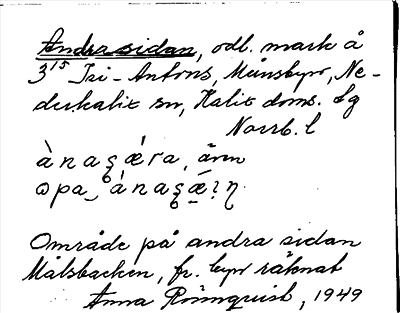 Andra sidan, odl. mark å
3¹⁵ Isi-Antons, Månsbyn, Ne-
derkalix sn, Kalix doms. lg
Norrb. l
àna ra, även
ɷpa‿
Område på andra sidan
Målsbacken, fr. byn räknat
Anna Rönnquist, 1949